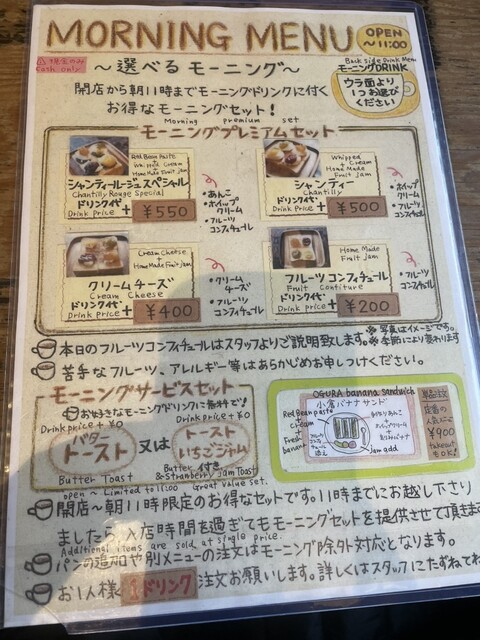 MORNING MENU
OPEN
~11:00
現金のみ
Cash only
～選べるモーニング～
Back side Drink Menu
モーニングDRINK
ウラ面より
1つお選び
ください
開店から朝11時までモーニングドリンクに付く
お得なモーニングセット!
Morning premium set
モーニングプレミアムセット
Red Bean Paste
Whipped Cream
Home Made Fruit Jam
シャンティールージュスペシャル
Chantilly Rouge Special
ドリンク代
Drink price + ¥550
・あんこ
・ホイップクリーム
・フルーツコンフィチュール
Whipped Cream
+
Home Made
Fruit Jam
シャンティー
Chantilly
ドリンク代
Drink price + ¥500
・ホイップクリーム
・フルーツコンフィチュール
Cream Cheese
+
Home Made Fruit Jam
クリームチーズ
Cream Cheese
ドリンク代
Drink price + ¥400
・クリームチーズ
・フルーツコンフィチュール
Home Made
Fruit Jam
フルーツコンフィチュール
Fruit Confiture
ドリンク代
Drink price + ¥200
・フルーツコンフィチュール
※写真はイメージです。
※季節により変わります
本日のフルーツコンフィチュールはスタッフよりご説明致します。
苦手なフルーツ、アレルギー等はあらかじめお申しつけください。
モーニングサービスセット
お好きなモーニングドリンクに無料で!
Drink price + ¥0
バタートースト
Butter Toast
又は
Drink price + ¥0
トースト
いちごジャム
付き
Butter
& Strawberry Jam Toast
OGURA banana sandwich
小倉バナナサンド
Red Bean paste
+
cream
+
Fresh
banana
Jam add
¥900
takeout
もOK!
open ~ Limited to 11:00 Great value set.
開店～朝11時限定のお得なセットです。11時までにお越し下さり
ましたら、入店時間を過ぎてもモーニングセットを提供させて頂きます
Additional items are sold at single price.
パンの追加や別メニューの注文はモーニング除外対応となります。
お1人様1ドリンク注文お願いします。詳しくはスタッフにたずねてね